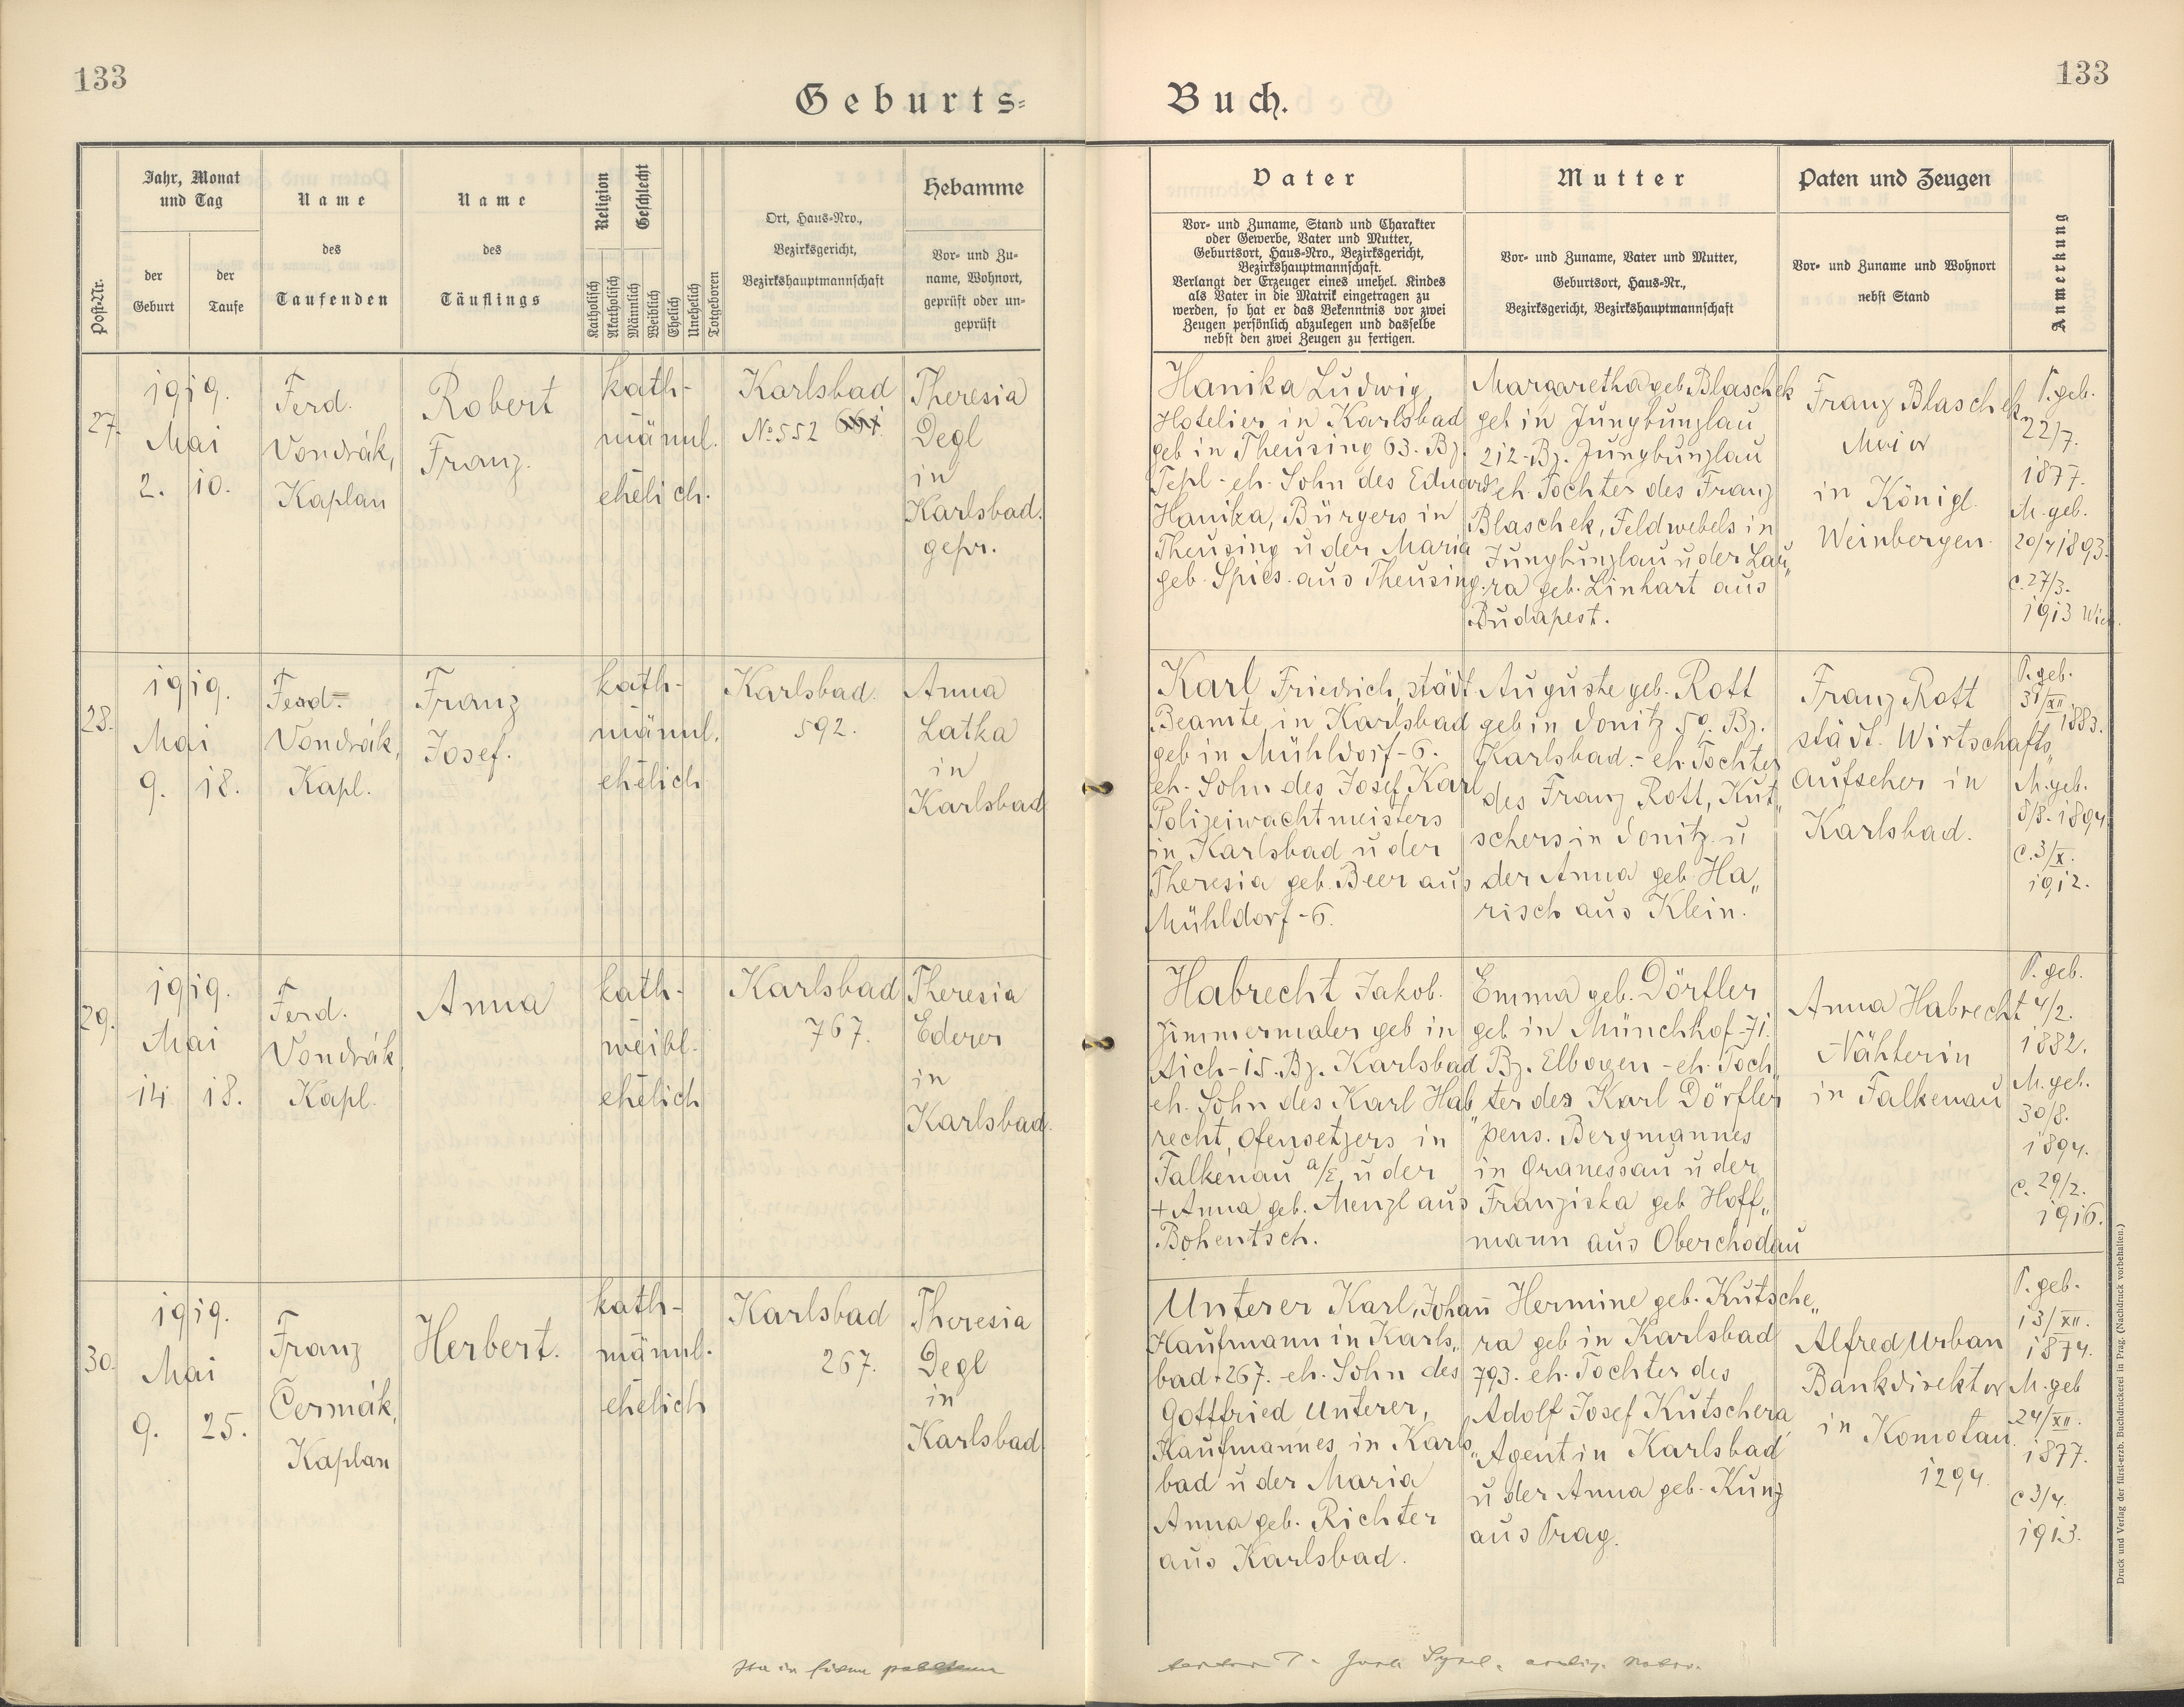 133
133
Geburts=
Buch.
Post=Nr.
Jahr, Monat
und Tag
der
Geburt
der
Taufe
Name
des
Taufenden
Name
des
Täuflings
Religion
Geschlecht
Katholisch
Akatholisch
Männlich
Weiblich
Ehelich
Unehelich
Totgeboren
Ort, Haus=Nro.,
Bezirksgericht,
Bezirkshauptmannschaft
Hebamme
Vor= und Zu=
name, Wohnort,
geprüft oder un=
geprüft
Vater
Vor= und Zuname, Stand und Charakter
oder Gewerbe, Vater und Mutter,
Geburtsort, Haus=Nro., Bezirksgericht,
Bezirkshauptmannschaft.
Verlangt der Erzeuger eines unehel. Kindes
als Vater in die Matrik eingetragen zu
werden, so hat er das Bekenntnis vor zwei
Zeugen persönlich abzulegen und dasselbe
nebst den zwei Zeugen zu fertigen.
Mutter
Vor= und Zuname, Vater und Mutter,
Geburtsort, Haus=Nr.,
Bezirksgericht, Bezirkshauptmannschaft
Paten und Zeugen
Vor= und Zuname und Wohnort
nebst Stand
Anmerkung
27.
1919.
Mai
2. 10.
Ferd.
Vondrák,
Kaplan
Robert
Franz.
kath-
männl.
ehelich.
Karlsbad
No 552
Theresia
Degl
in
Karlsbad.
gepr.
Hanika Ludwig,
Hotelier in Karlsbad
geb in Theusing 63. Bz.
Tepl - eh. Sohn des Eduard
Hanika, Bürgers in
Theusing u der Maria
geb. Spies aus Theusing.
Margaretha geb. Blaschek
geb in Jungbunzlau
212 - Bz. Jungbunzlau
eh. Tochter des Franz
Blaschek, Feldwebels in
Jungbunzlau u der Lau„
ra geb. Linhart aus
Budapest.
Franz Blaschek
Major
in Königl.
Weinbergen.
P. geb.
22/7.
1877.
M. geb.
20/4 1893.
c. 27/3.
1913 Wien.
28.
1919.
Mai
9. 18.
Ferd-
Vondrák,
Kapl.
Franz
Josef.
kath-
männl.
ehelich
Karlsbad.
592.
Anna
Latka
in
Karlsbad
Karl Friedrich, städt
Beamte in Karlsbad
geb in Mühldorf - 6.
eh. Sohn des Josef Karl
Polizeiwachtmeisters
in Karlsbad u der
Theresia geb. Beer aus
Mühldorf - 6.
Auguste geb. Rott
geb in Donitz 50. Bz.
Karlsbad. - eh. Tochter
des Franz Rott, Kut„
schers in Donitz u
der Anna geb. Ha„
risch aus Klein.
Franz Rott
städt. Wirtschafts„
aufseher in
Karlsbad.
P. geb.
31/XII
1883.
M. geb.
8/8. 1894.
c. 3/X.
1912.
29.
1919.
Mai
14 18.
Ferd.
Vondrák,
Kapl.
Anna
kath-
weibl.
ehelich
Karlsbad
767.
Theresia
Ederer
in
Karlsbad.
Habrecht Jakob.
Zimmermaler geb in
Aich - 15. Bz. Karlsbad
eh. Sohn des Karl Hab„
recht, Ofensetzers in
Falkenau a/E u der
+ Anna geb. Menzl aus
Bohentsch.
Emma geb. Dörfler
geb in Münchhof - 71.
Bz. Elbogen - eh. Toch„
ter des Karl Dörfler
pens. Bergmannes
in Granessau u der
Franziska geb Hoff„
mann aus Oberchodau
Anna Habrecht
Nähterin
in Falkenau
P. geb.
4/2.
1882.
M. geb.
30/8.
1894.
c. 29/2.
1916.
30.
1919.
Mai
9. 25.
Franz
Čermák,
Kaplan
Herbert.
kath-
männl.
ehelich
Karlsbad
267.
Theresia
Degl
in
Karlsbad
Unterer Karl, Johan̄
Kaufmann in Karls„
bad + 267. eh. Sohn des
Gottfried Unterer,
Kaufmannes in Karls„
bad u der Maria
Anna geb. Richter
aus Karlsbad.
Hermine geb. Kutsche„
ra geb in Karlsbad
793. eh. Tochter des
Adolf Josef Kutschera
Agent in Karlsbad
u der Anna geb. Kunz
aus Prag.
Alfred Urban
Bankdirektor
in Komotau
1294.
P. geb.
13/XII.
1874.
M. geb
24/XII.
1877.
c 3/4.
1913.
Druck und Verlag der fürst-erzb. Buchdruckerei in Prag. (Nachdruck vorbehalten.)